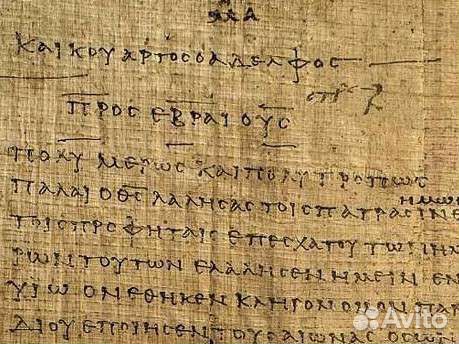 ΚΑΙ ΚΟΥΑΡΤΟϹ Ο ΑΔΕΛΦΟϹ
ΠΡΟϹ ΕΒΡΑΙΟΥϹ
ΠΟΛΥΜΕΡΩϹ ΚΑΙ ΠΟΛΥΤΡΟΠΩϹ
ΗΜΩΝ
ΠΑΛΑΙ Ο ΘϹ ΛΑΛΗϹΑϹ ΤΟΙϹ ΠΑΤΡΑϹΙΝ Ε
ΤΟΙϹ ΠΡΟΦΗΤΑΙϹ ΕΠ ΕϹΧΑΤΟΥ ΤΩΝ ΗΜ
ΡΩΝ ΤΟΥΤΩΝ ΕΛΑΛΗϹΕΝ ΗΜΕΙΝ ΕΝ
ΥΙΩ ΟΝ ΕΘΗΚΕΝ ΚΛΗΡΟΝΟΜΟΝ ΠΑΝ
ΔΙ ΟΥ ΕΠΟΙΗϹΕΝ ΤΟΥϹ ΑΙΩΝΑϹ ΟϹ ΩΝ
Avito